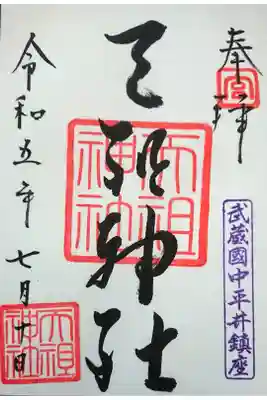 奉拝
武蔵國中平井鎮座
天祖神社
天祖
神社
令和五年七月十日
天祖
神社